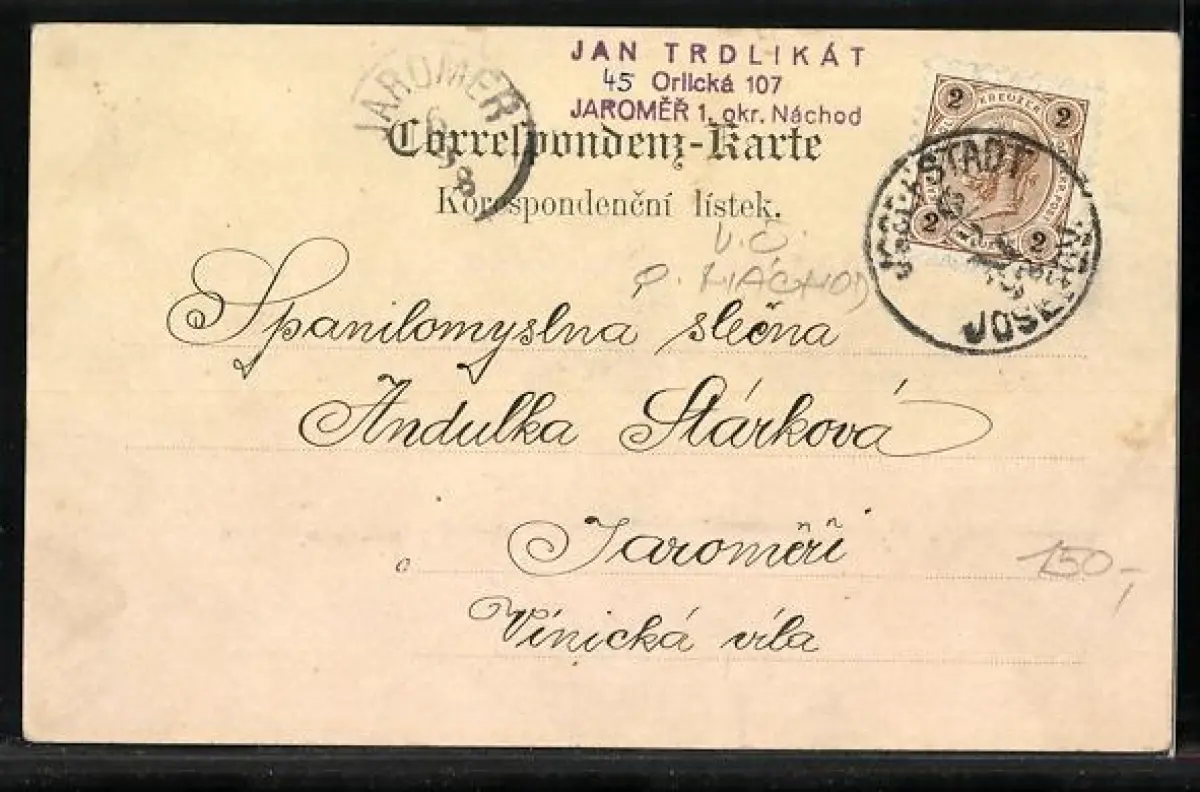 JAN TRDLIKÁT
45 Orlická 107
JAROMĚŘ 1. okr. Náchod
JAROMĚR
6
8
Correspondenz-Karte
Korespondenční lístek.
2 KREUZER 2
2 2
JOSEFSTADT
JOSEFOV
V. Č.
P. NÁCHOD
Spanilomyslna slečna
Andulka Stárková
Jaroměři
Vinická vila
150,-